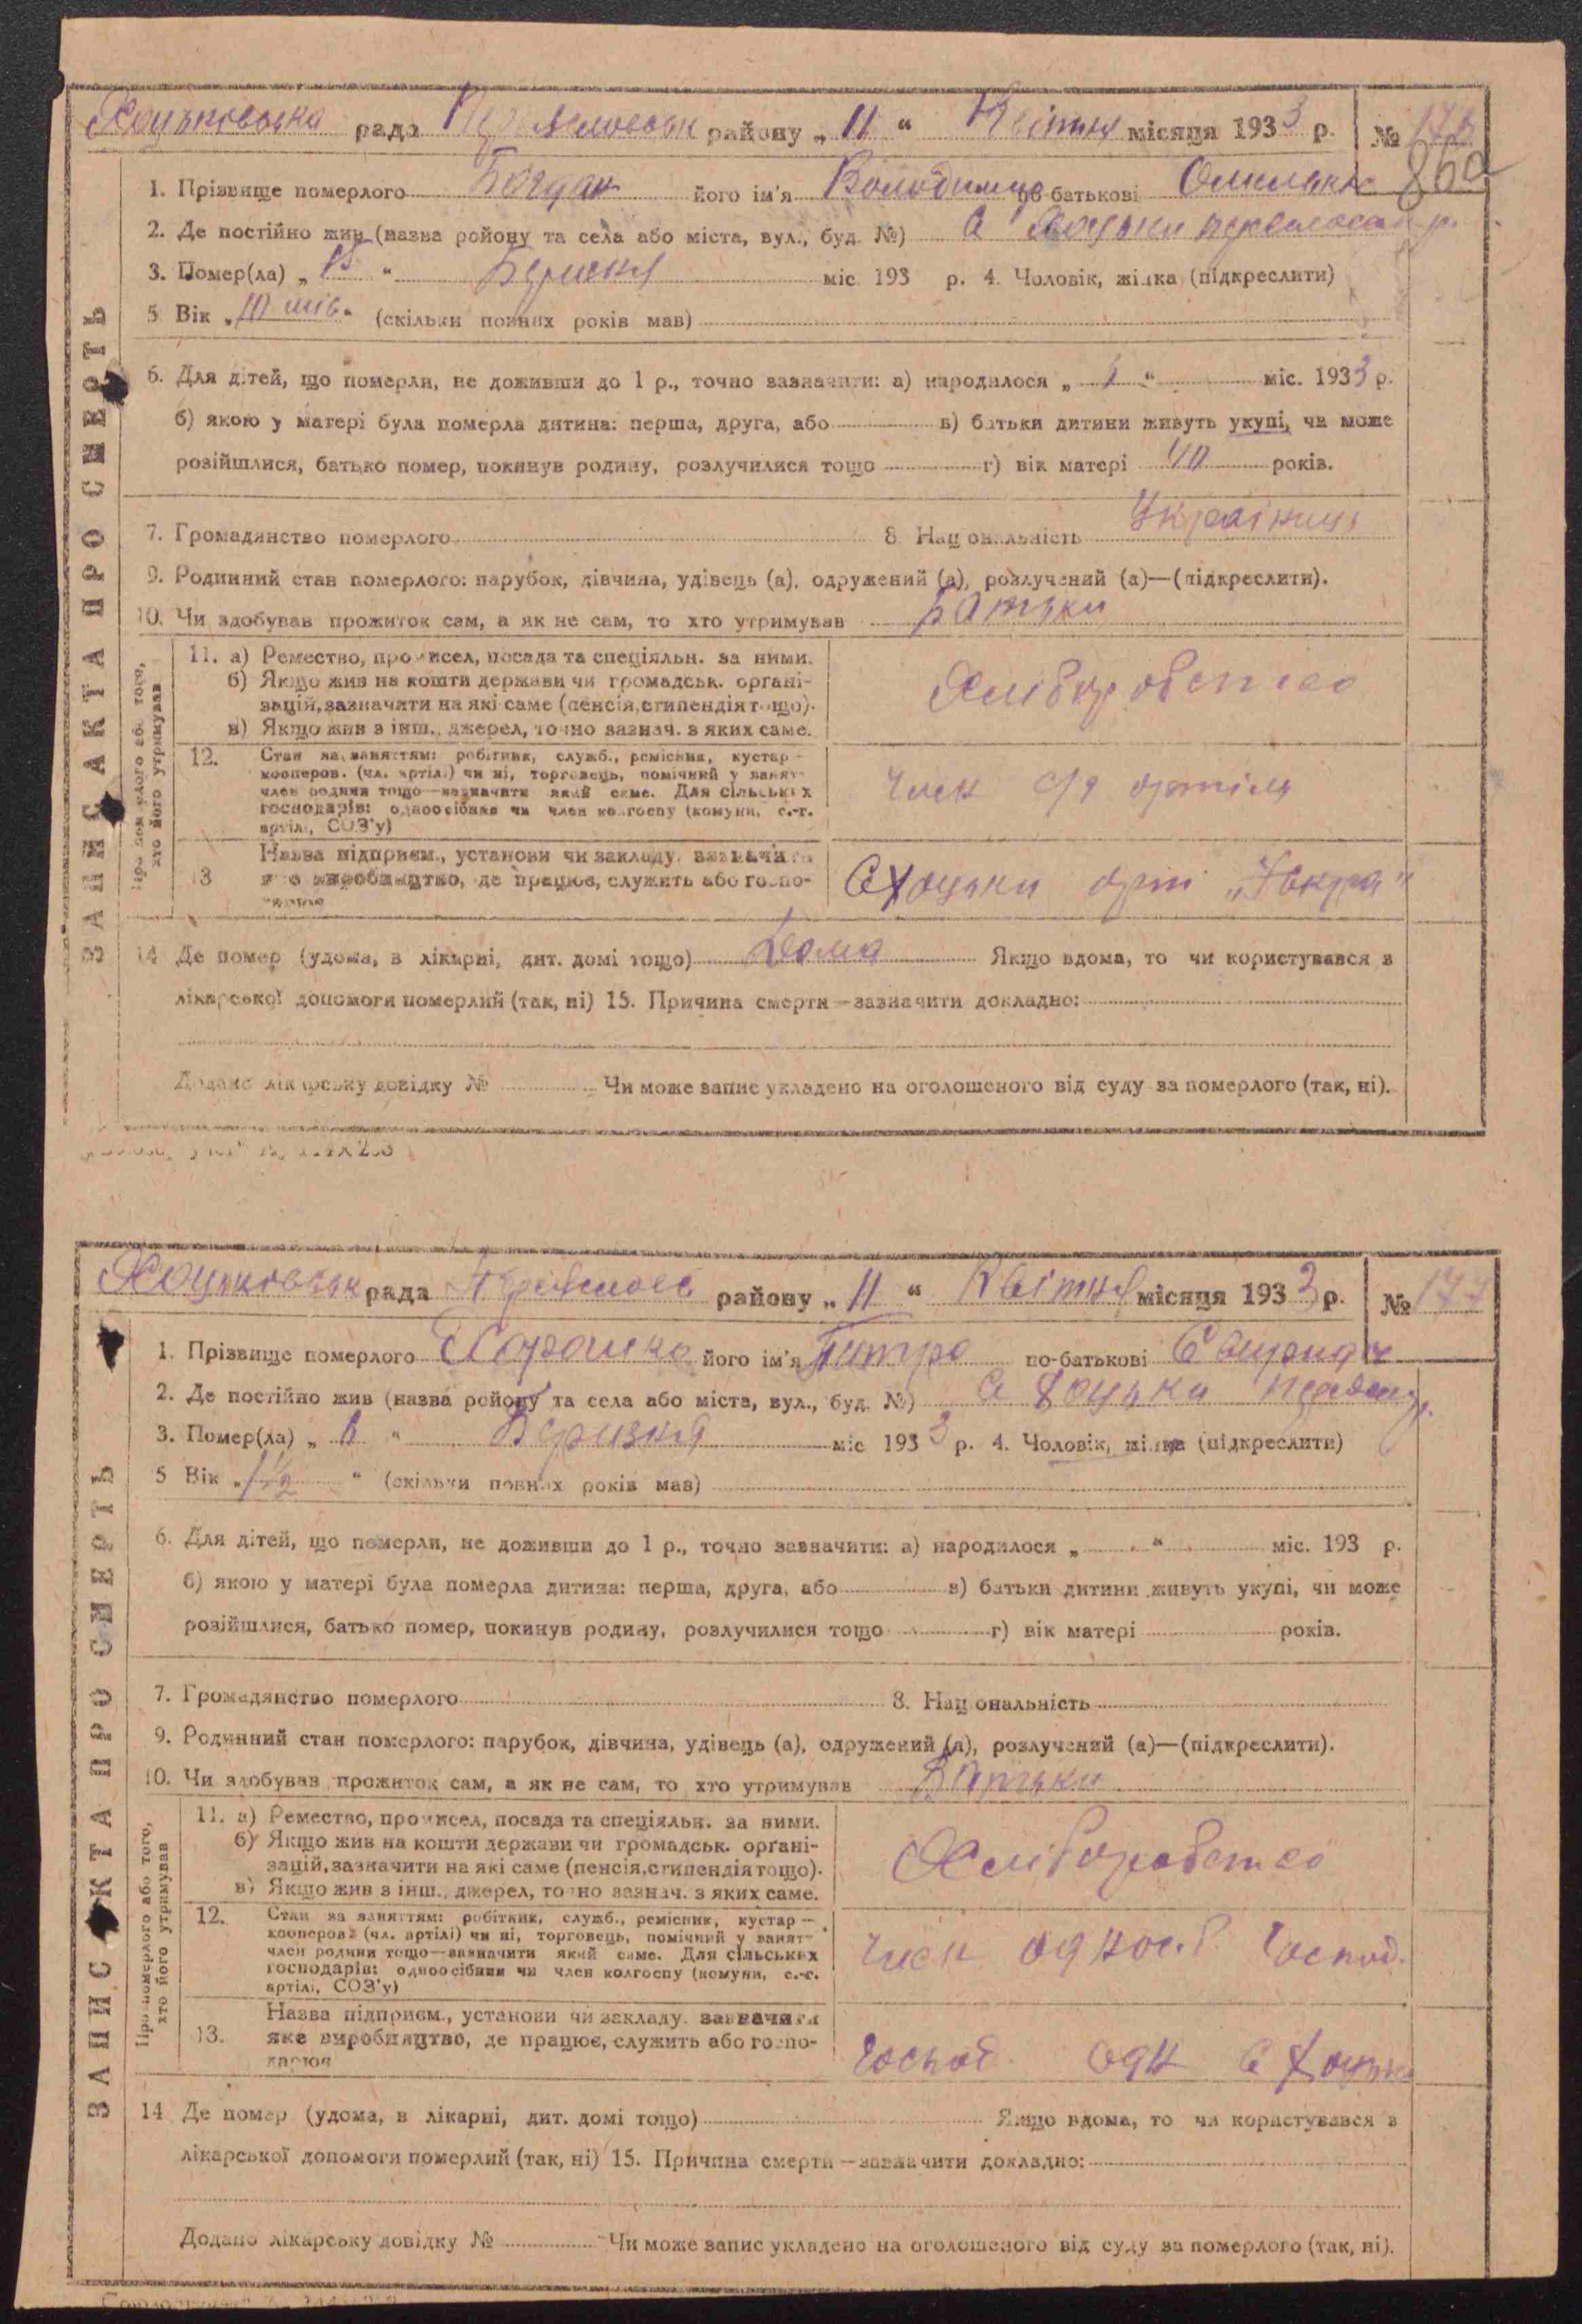 Хоцьковська рада району „ 11 “ Квітня місяця 193 3 р. №
86а
1. Прізвище померлого Богдан його ім'я Володимир по-батькові
2. Де постійно жив (назва району та села або міста, вул., буд. №) с Хоцьки
3. Помер(ла) „ “ міс 193 р. 4. Чоловік, жінка (підкреслити)
5 Вік „ 10 “ (скільки повних років мав)
6. Для дітей, що померли, не доживши до 1 р., точно зазначити: а) народилося „ “ міс. 193 3 р.
б) якою у матері була померла дитина: перша, друга, або в) батьки дитини живуть укупі, чи може
розійшлися, батько помер, покинув родину, розлучилися тощо г) вік матері 40 років.
7. Громадянство померлого 8. Національність Українець
9. Родинний стан померлого: парубок, дівчина, удівець (а), одружений (а), розлучений (а)—(підкреслити).
10. Чи здобував прожиток сам, а як не сам, то хто утримував Батьки
ЗАПИС АКТА ПРО СМЕРТЬ
Про померлого або того, хто його утримував
11. а) Ремество, промисел, посада та спеціяльн. за ними.
б) Якщо жив на кошти держави чи громадськ. органі-
зацій, зазначити на які саме (пенсія, стипендія тощо).
в) Якщо жив з інш., джерел, точно зазнач. з яких саме.
Хліборобство
12. Стан за заняттям: робітник, служб., ремісник, кустар—
кооперов. (чл. артілі) чи ні, торговець, помічний у занят—
член родини тощо—зазначити який саме. Для сільських
господарів: одноосібник чи член колгоспу (комуни, с.-г.
артілі, СОЗ'у)
член с/г артіль
13 Назва підприєм., установи чи закладу. зазначити
яке виробництво, де працює, служить або госпо-
дарює
с Хоцьки арт
14 Де помер (удома, в лікарні, дит. домі тощо) Дома Якщо вдома, то чи користувався з
лікарської допомоги померлий (так, ні) 15. Причина смерти—зазначити докладно:
Додано лікарську довідку № Чи може запис укладено на оголошеного від суду за померлого (так, ні).
Хоцьковськ рада району „ 11 “ Квітня місяця 193 3 р. № 177
1. Прізвище померлого його ім'я Питро по-батькові
2. Де постійно жив (назва району та села або міста, вул., буд. №) с Хоцьки
3. Помер(ла) „ “ Беризня міс 193 3 р. 4. Чоловік, жінка (підкреслити)
5 Вік „ 1½ “ (скільки повних років мав)
6. Для дітей, що померли, не доживши до 1 р., точно зазначити: а) народилося „ “ міс. 193 р.
б) якою у матері була померла дитина: перша, друга, або в) батьки дитини живуть укупі, чи може
розійшлися, батько помер, покинув родину, розлучилися тощо г) вік матері років.
7. Громадянство померлого 8. Національність
9. Родинний стан померлого: парубок, дівчина, удівець (а), одружений (а), розлучений (а)—(підкреслити).
10. Чи здобував прожиток сам, а як не сам, то хто утримував Батьки
ЗАПИС АКТА ПРО СМЕРТЬ
Про померлого або того, хто його утримував
11. а) Ремество, промисел, посада та спеціяльн. за ними.
б) Якщо жив на кошти держави чи громадськ. органі-
зацій, зазначити на які саме (пенсія, стипендія тощо).
в) Якщо жив з інш., джерел, точно зазнач. з яких саме.
Хліборобство
12. Стан за заняттям: робітник, служб., ремісник, кустар—
кооперов. (чл. артілі) чи ні, торговець, помічний у занят—
член родини тощо—зазначити який саме. Для сільських
господарів: одноосібник чи член колгоспу (комуни, с.-г.
артілі, СОЗ'у)
член одноос. господ.
13. Назва підприєм., установи чи закладу. зазначити
яке виробництво, де працює, служить або госпо-
дарює
господ. одн с Хоцьки
14 Де помер (удома, в лікарні, дит. домі тощо) Якщо вдома, то чи користувався з
лікарської допомоги померлий (так, ні) 15. Причина смерти—зазначити докладно:
Додано лікарську довідку № Чи може запис укладено на оголошеного від суду за померлого (так, ні).